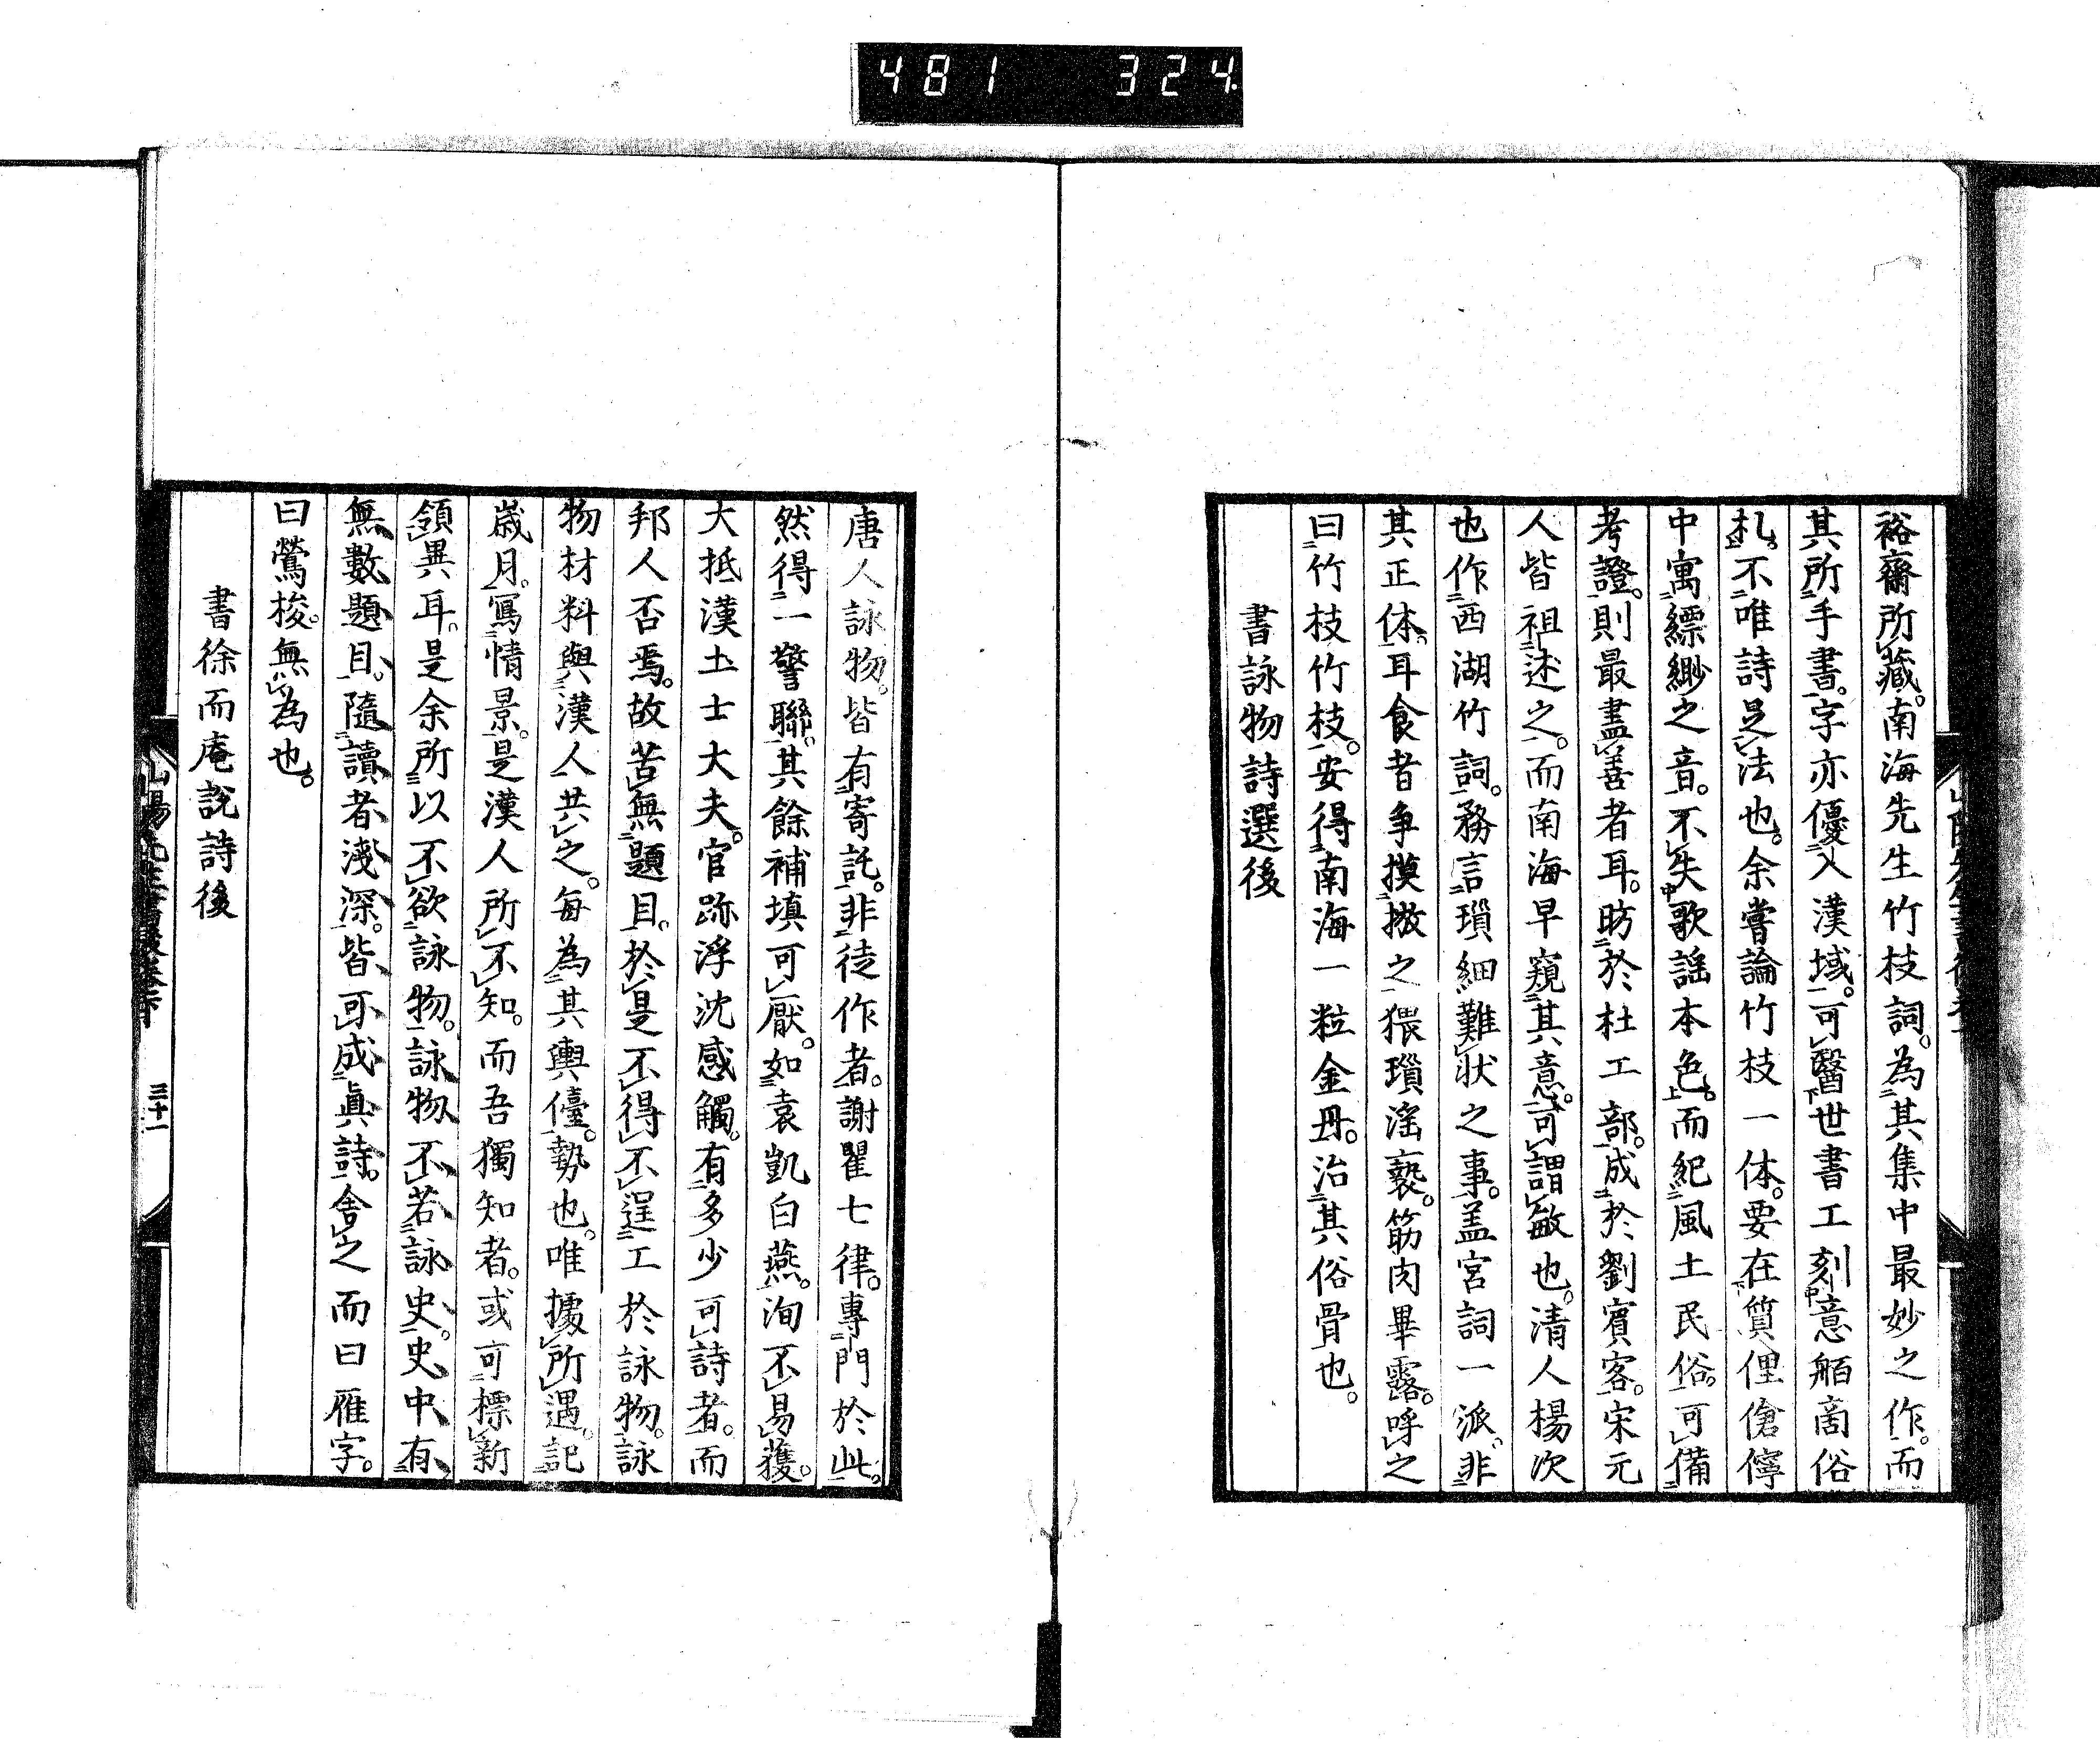 481 324
裕齋所藏。南海先生竹枝詞。為其集中最妙之作。而
其所手書。字亦優入漢域。可醫世書工刻意舶商俗
札。不唯詩足法也。余嘗論竹枝一体。要在質俚傖儜
中寓縹緲之音。不失歌謡本色。而紀風土民俗。可備
考證。則最盡善者耳。昉於杜工部。成於劉賓客。宋元
人皆祖述之。而南海早窺其意。可謂敏也。清人楊次
也作西湖竹詞。務言瑣細難狀之事。盖宮詞一派。非
其正体。耳食者争摸擬之。猥瑣滛褻。筋肉畢露。呼之
曰竹枝竹枝。安得南海一粒金丹。治其俗骨也。
書詠物詩選後
唐人詠物。皆有寄託。非徒作者。謝瞿七律。專門於此。
然得一警聯。其餘補填可厭。如袁凱白燕。洵不易獲。
大抵漢土士大夫。官跡浮沈感觸。有多少可詩者。而
邦人否焉。故苦無題目。於是不得不逞工於詠物。詠
物材料與漢人共之。每為其輿儓。勢也。唯據所遇。記
歳月。寫情景。是漢人所不知。而吾獨知者。或可標新
領異耳。是余所以不欲詠物。詠物不若詠史。史中有
無數題目。隨讀者淺深。皆可成眞詩。舍之而曰雁字。
曰鶯梭。無為也。
書徐而庵說詩後
三十一